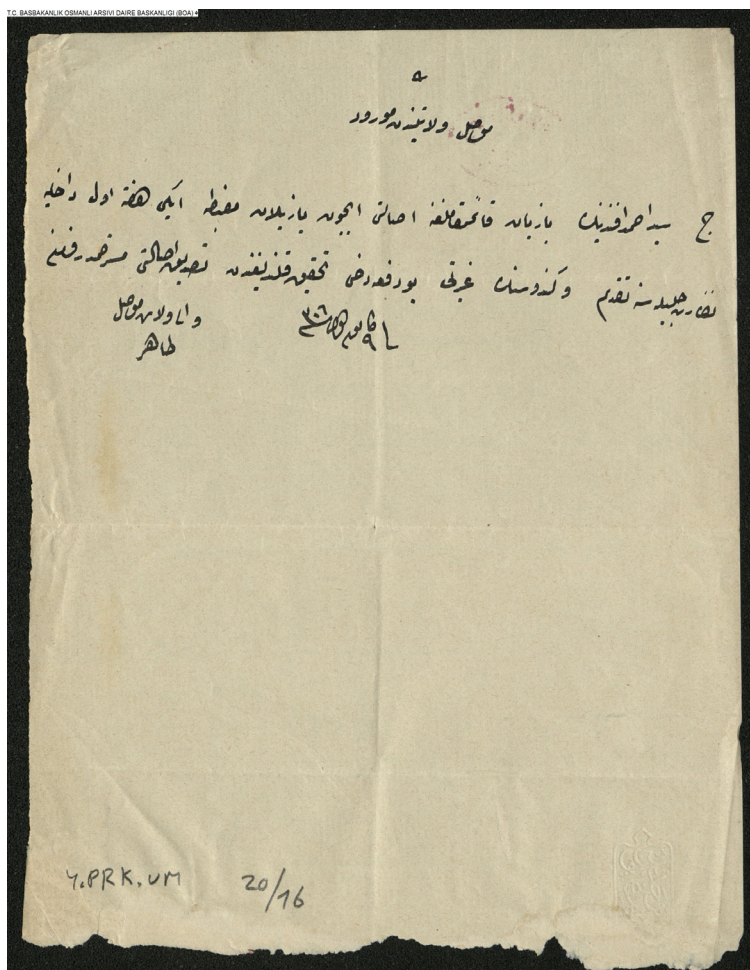 T.C. BASBAKANLIK OSMANLI ARSIVI DAIRE BASKANLIGI (BOA)
موصل ولايتندن مورود
ج سيد احمد افندينك بازيان قائممقاملغنه اصالتى ايچون يازيلان مضبطه ايكى هفته اول داخليه
نظارت جليله سنه تقديم و كندوسنك غيرتى بو دفعه دخى تحقيق قلنديغندن تصديق اصالتى مسترحمدر فرمان
والئ ولايت موصل
طاهر
Y.PRK.UM 20/16